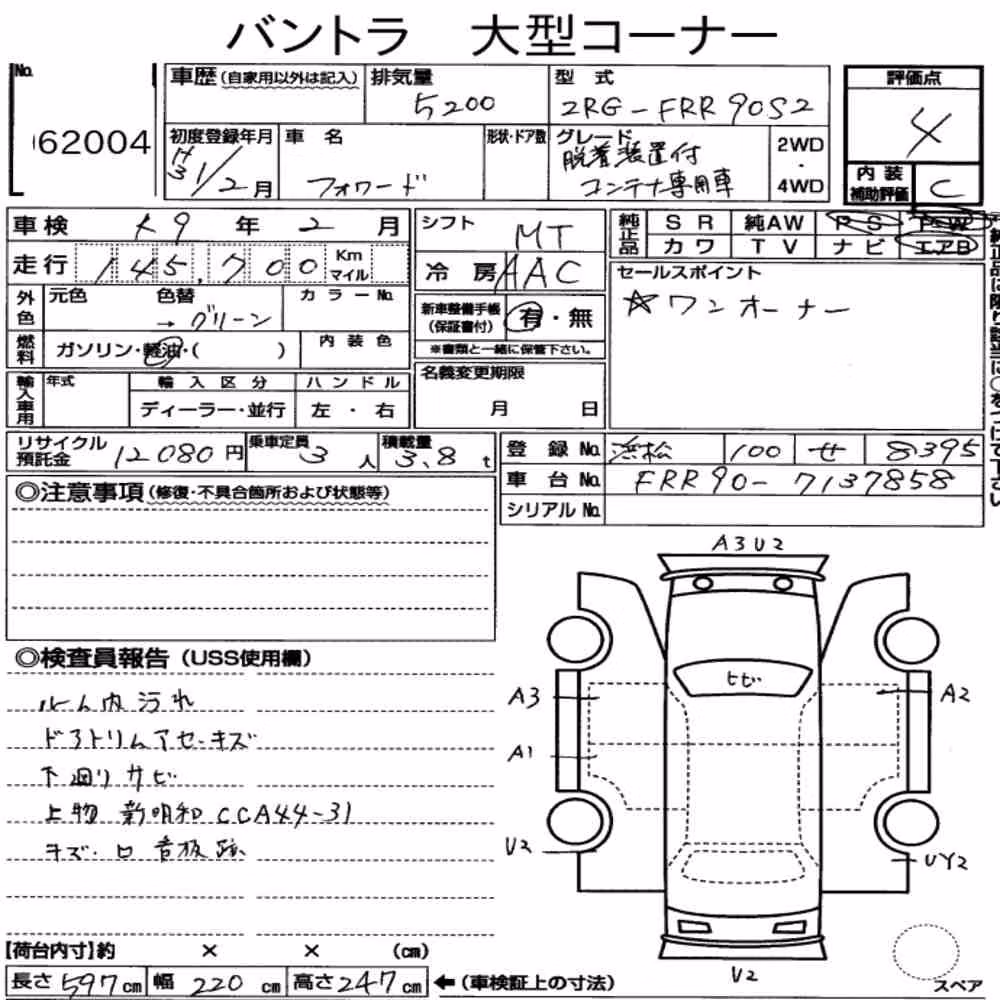 バントラ 大型コーナー
No. 62004
車歴(自家用以外は記入) 排気量 5200 型式 2RG-FRR90S2 評価点 4
初度登録年月 H31/2月 車名 フォワード 形状・ドア数 グレード 脱着装置付 コンテナ専用車 2WD・4WD 内装補助評価 C
車検 R9年2月 シフト MT 純正品 SR 純AW PS PW
走行 145,700 Km マイル 冷房 AAC カワ TV ナビ エアB
外色 元色 色替 → グリーン カラーNo. 新車整備手帳(保証書付) 有・無 セールスポイント
☆ワンオーナー
燃料 ガソリン・軽油・( ) 内装色 ※書類と一緒に保管下さい。
輸入車用 年式 輸入区分 ハンドル 名義変更期限
ディーラー・並行 左・右 月 日
リサイクル預託金 12080円 乗車定員 3人 積載量 3.8t 登録No. 浜松 100 せ 8395
車台No. FRR90-7137858
シリアルNo.
◎注意事項(修復・不具合箇所および状態等)
◎検査員報告(USS使用欄)
ルーム内汚れ
ドアトリムアセ・キズ
下廻りサビ
上物 新明和 CCA44-31
キズ・凹 看板跡
A3U2
ヒビ
A3
A2
A1
U2
UY2
U2
スペア
【荷台内寸】約 × × (cm)
長さ597cm 幅220cm 高さ247cm ←(車検証上の寸法)